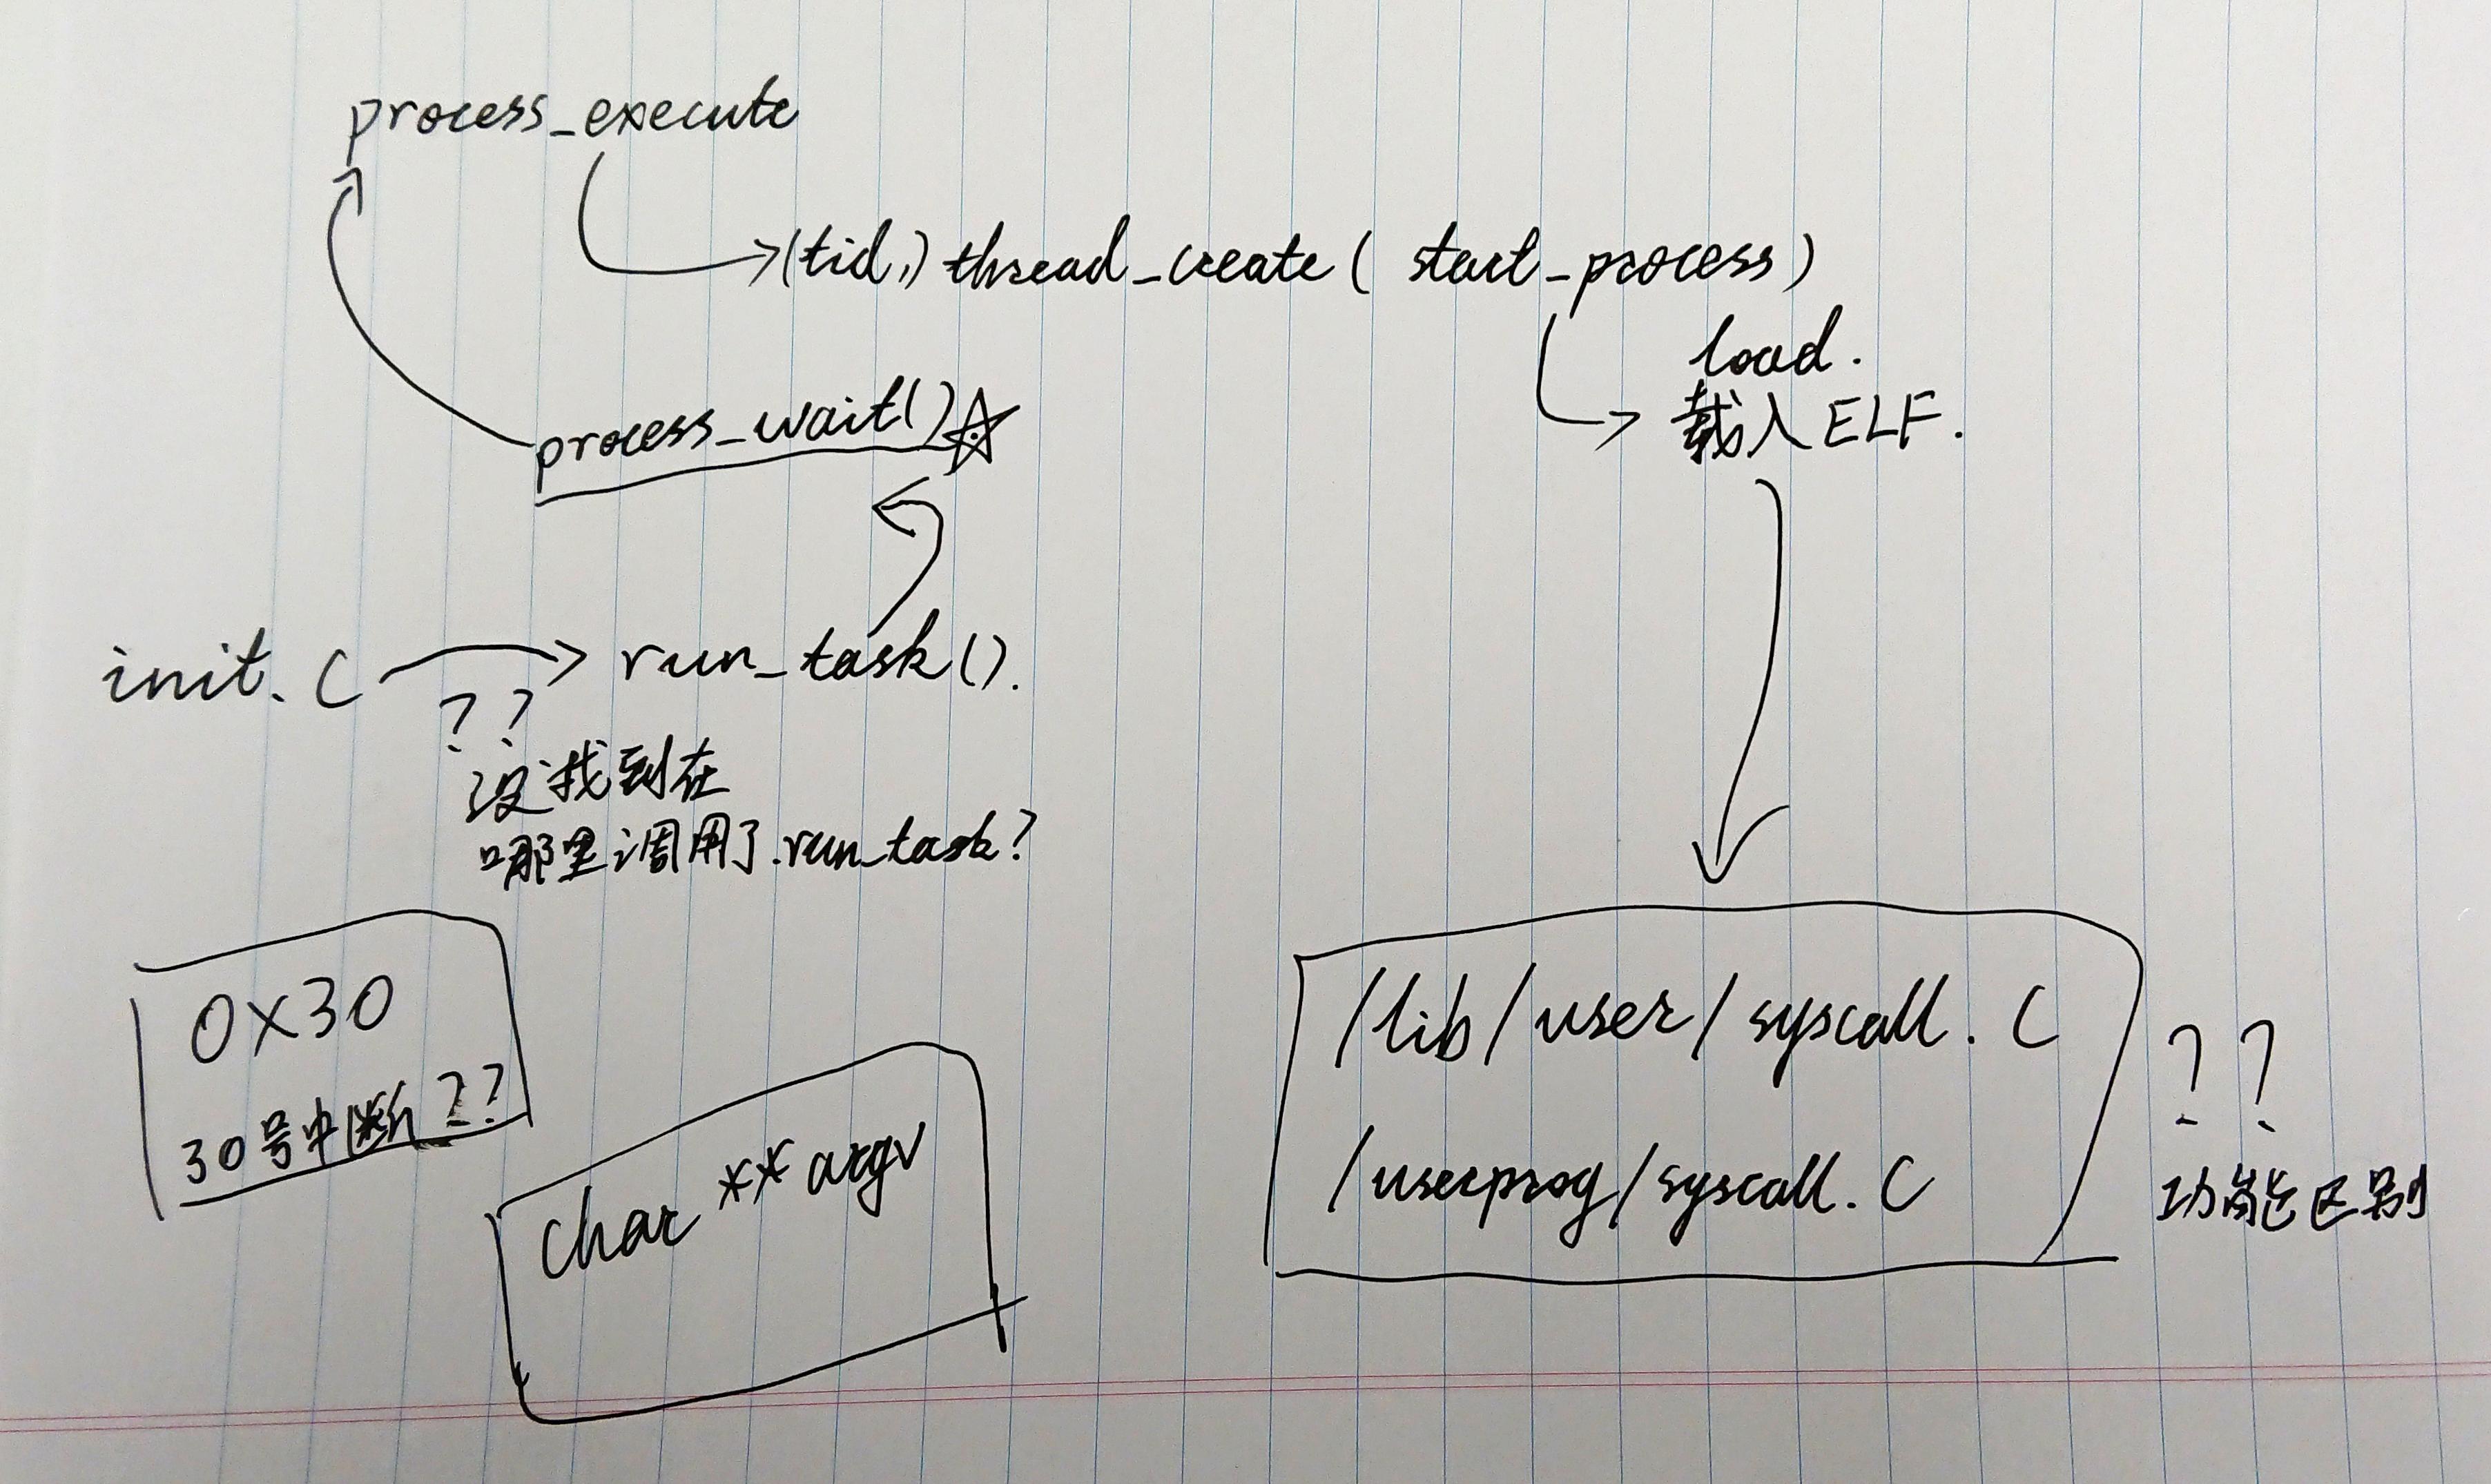 process_execute
(tid,) thread_create( start_process)
load.
载入ELF.
process_wait()
init.c
run_task().
??
没找到在
哪里调用了.run_task?
0x30
30号中断??
char **argv
/lib/user/syscall.c
/userprog/syscall.c
??
功能区别